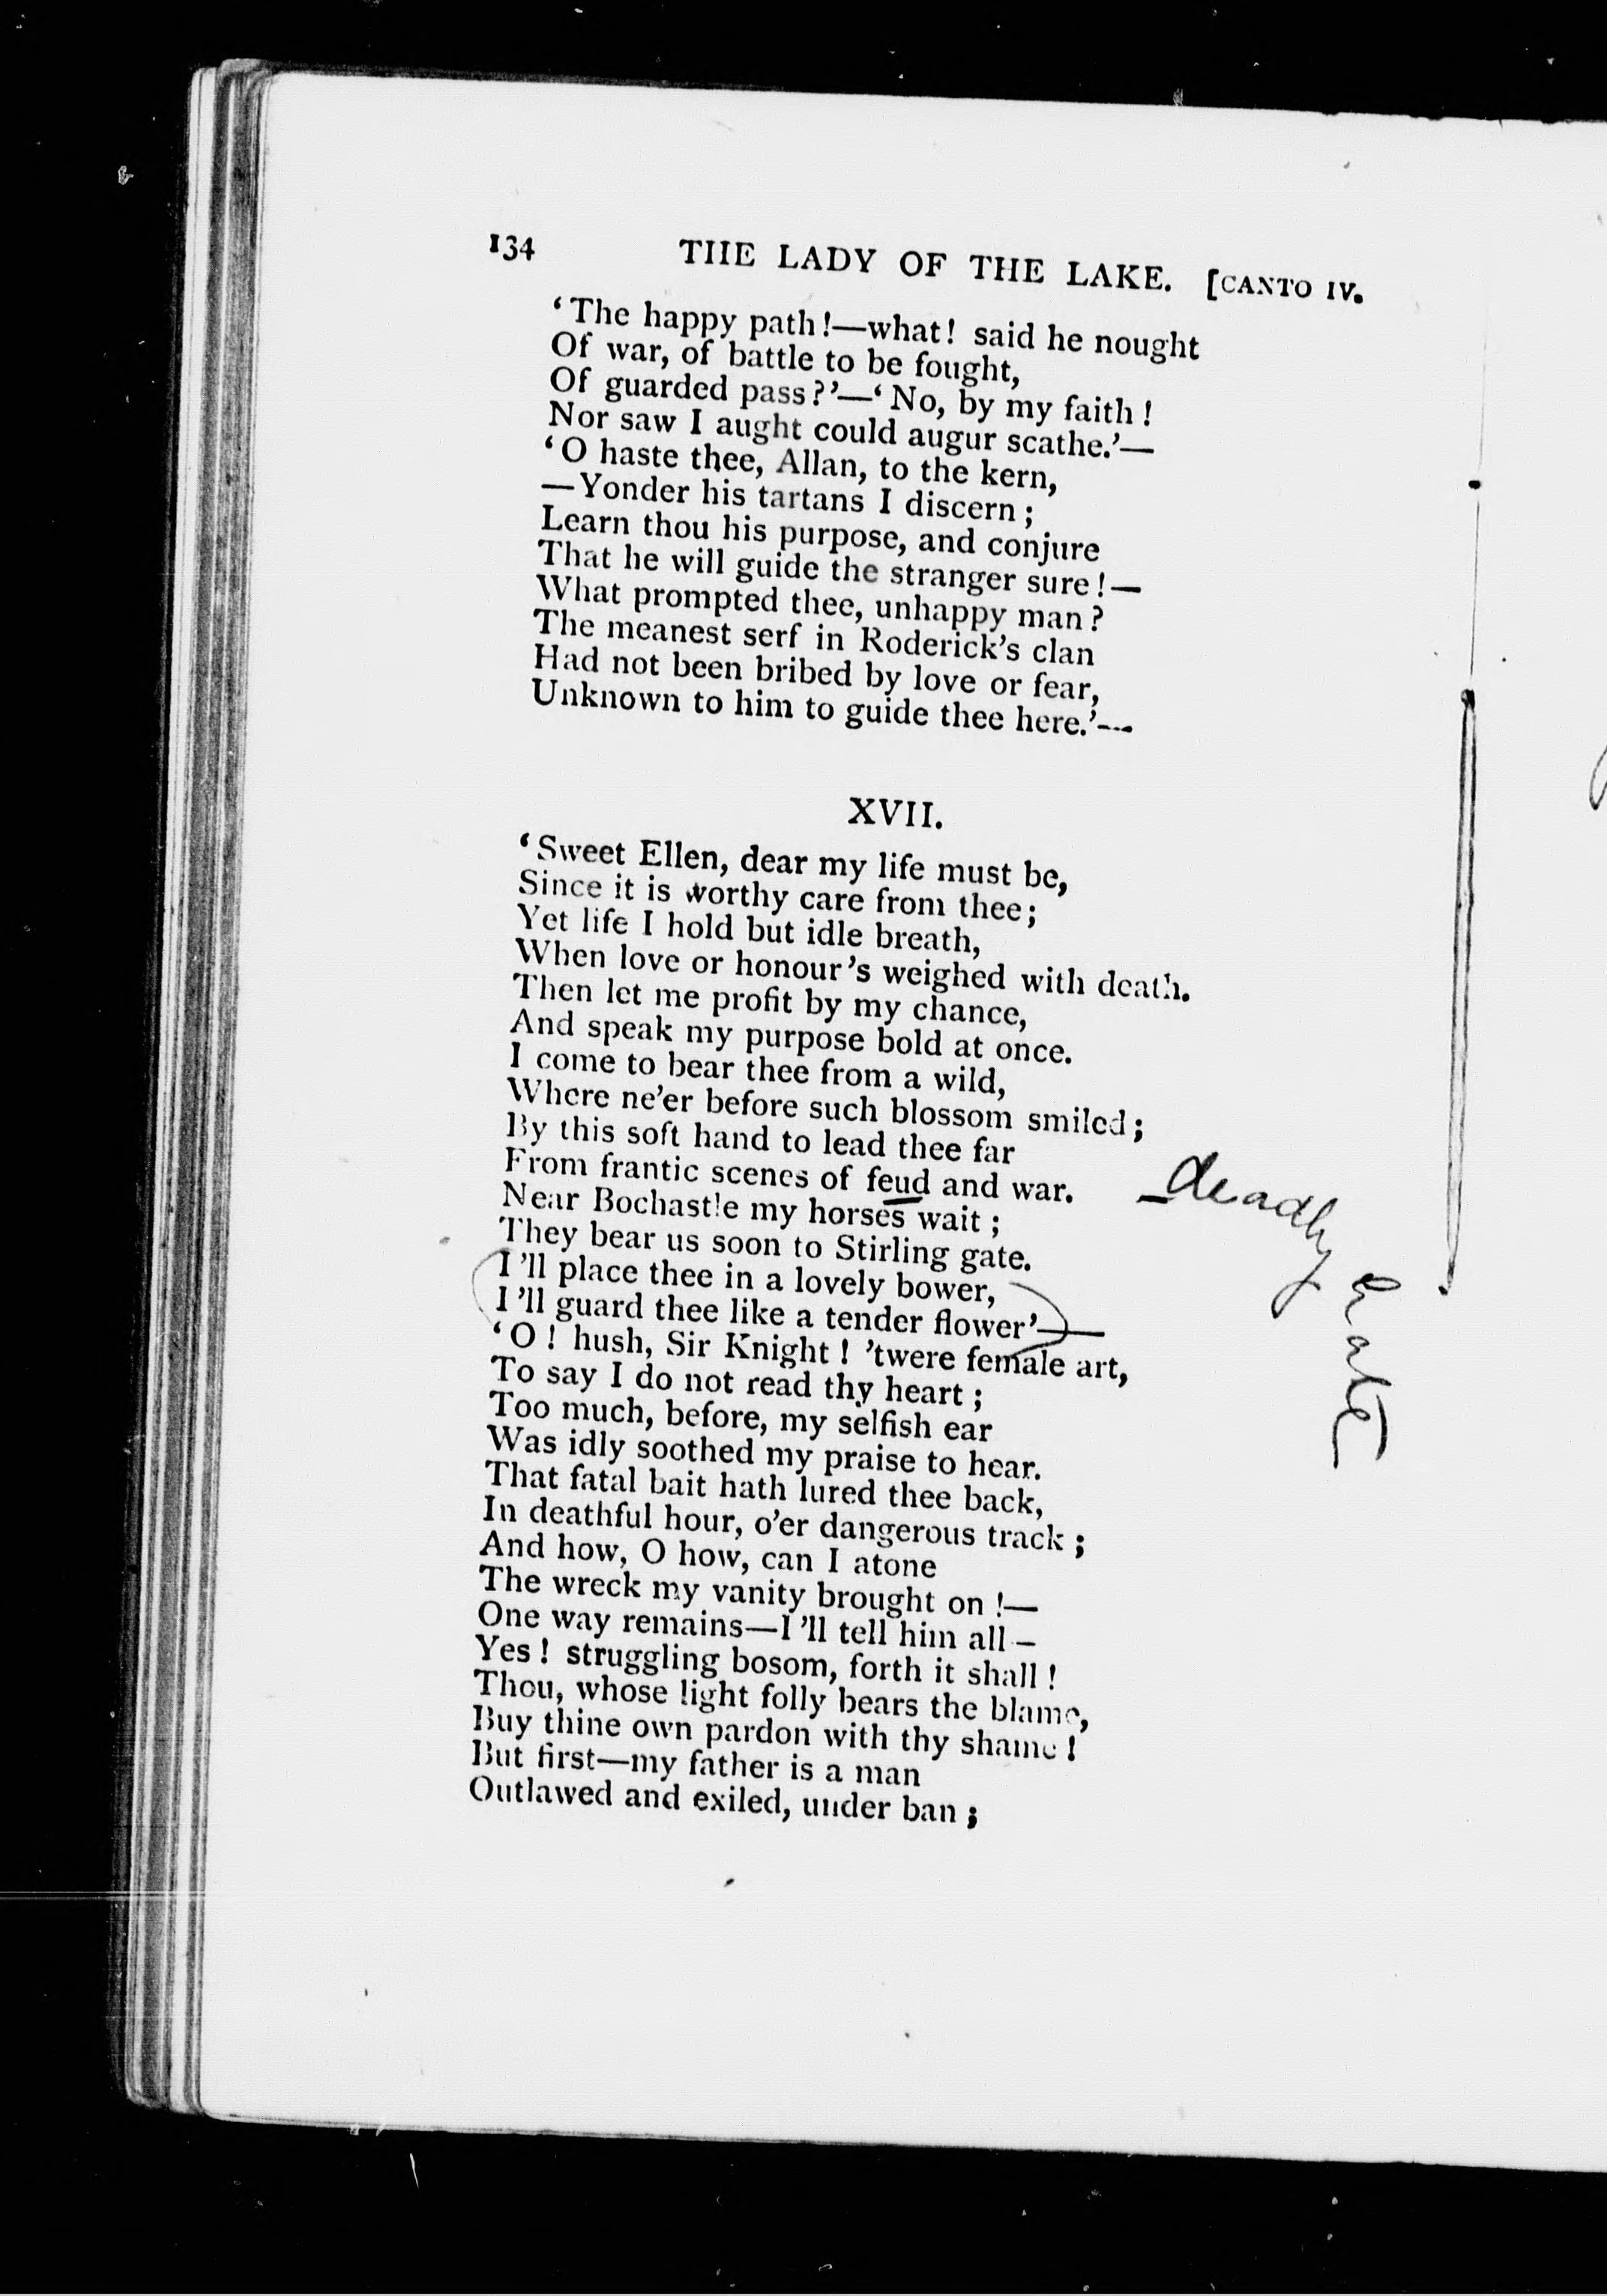 134 THE LADY OF THE LAKE. [CANTO IV.
‘The happy path!—what! said he nought
Of war, of battle to be fought,
Of guarded pass?’—‘No, by my faith!
Nor saw I aught could augur scathe.’—
‘O haste thee, Allan, to the kern,
—Yonder his tartans I discern;
Learn thou his purpose, and conjure
That he will guide the stranger sure!—
What prompted thee, unhappy man?
The meanest serf in Roderick’s clan
Had not been bribed by love or fear,
Unknown to him to guide thee here.’—
XVII.
‘Sweet Ellen, dear my life must be,
Since it is worthy care from thee;
Yet life I hold but idle breath,
When love or honour’s weighed with death.
Then let me profit by my chance,
And speak my purpose bold at once.
I come to bear thee from a wild,
Where ne’er before such blossom smiled;
By this soft hand to lead thee far
From frantic scenes of feud and war.
Near Bochastle my horses wait;
They bear us soon to Stirling gate.
I’ll place thee in a lovely bower,
I’ll guard thee like a tender flower’—
‘O! hush, Sir Knight! ’twere female art,
To say I do not read thy heart;
Too much, before, my selfish ear
Was idly soothed my praise to hear.
That fatal bait hath lured thee back,
In deathful hour, o’er dangerous track;
And how, O how, can I atone
The wreck my vanity brought on!—
One way remains—I’ll tell him all—
Yes! struggling bosom, forth it shall!
Thou, whose light folly bears the blame,
Buy thine own pardon with thy shame!
But first—my father is a man
Outlawed and exiled, under ban;
deadly hate